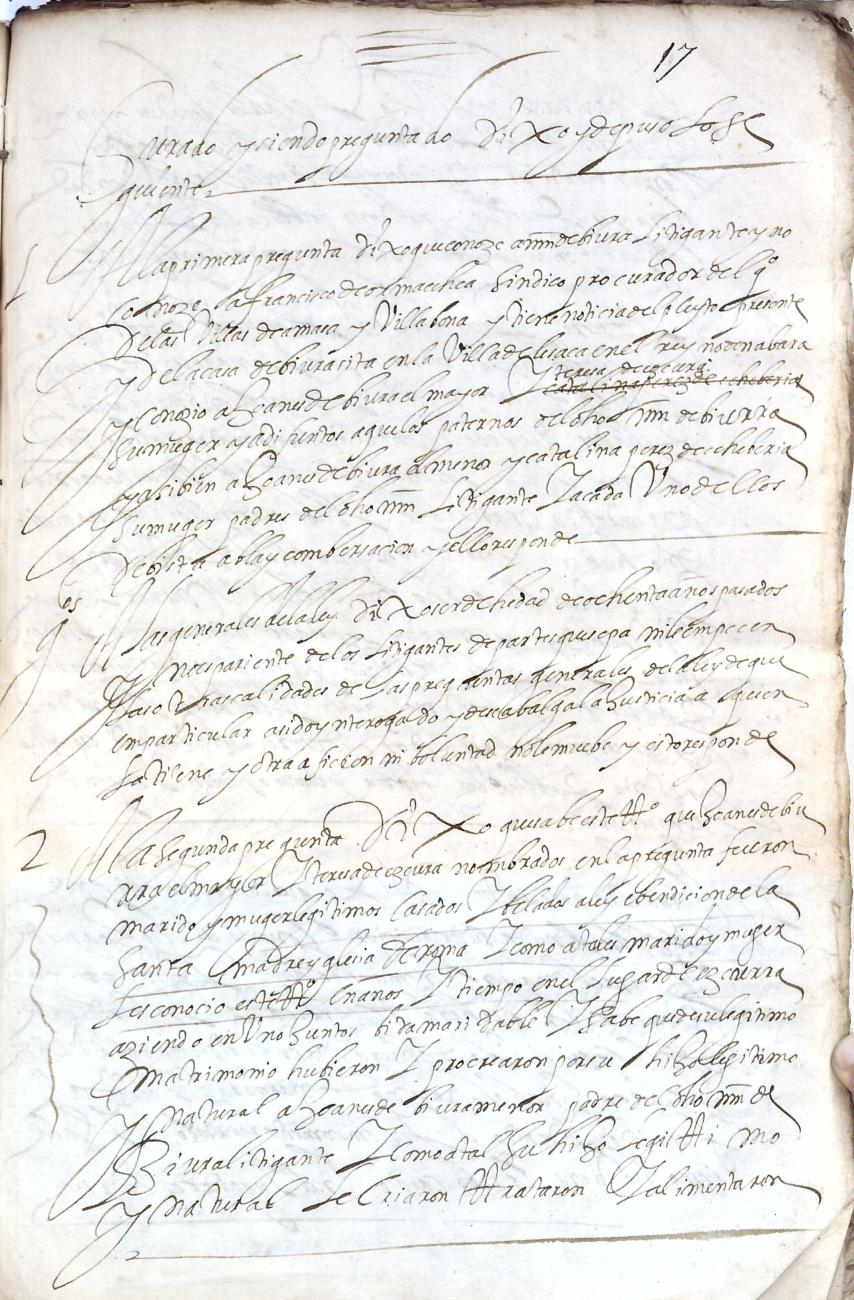 17
Jurado y siendo preguntado dixo y depuso lo se
guiente
1 A la primera pregunta dixo que conoze a mīn de biura litigante y no
conoze a francisco de ormaechea sindico procurador del qº
de las Villas de amasa y Villabona y tiene noticia del pleyto presente
y de la casa de biura sita en la Villa de lesaca en el reyno de nabara
y conozio a Joanes de biura el mayor Y teresa de ezcurra catalina perez de echeberria
su muger ya difuntos aguelos paternos del dho mīn de biurra
y asi bien a Joanes de biura el menor y catalina perez de echeberia
su muger padres del dho mīn litigante Y a cada Uno dellos
de bista abla y combersacion y esto responde
gˢ A las generales de la ley dixo ser de hedad de ochenta años pasados
Y no es pariente de los litigantes de partes que sepa ni le empecen
las otras calidades de las preguntas generales de la ley de que
em particular a sido ynterrogado y desea balga la Justicia a quien
la tiene y otra aficion ni boluntad no le muebe y esto responde
2 A la segunda pregunta dixo que sabe este ttº que Joanes de biu
ura el mayor Y teresa de ezcura nombrados en la pregunta fueron
marido y muger legitimos casados Y belados a ley e bendicion de la
santa madre yglesia de roma Y como a tales marido y muger
les conocio este ttº en años Y tiempo en el lugar de ezcurra
aziendo en Uno Juntos bida maridable Y sabe que de su legitimo
matrimonio hubieron Y procrearon por su hijo legitimo
y natural a Joanes de biura menor padre del dho mīn de
Biura litigante Y como a tal su hijo legittimo
y natural le criaron ttrataron Y alimentaron